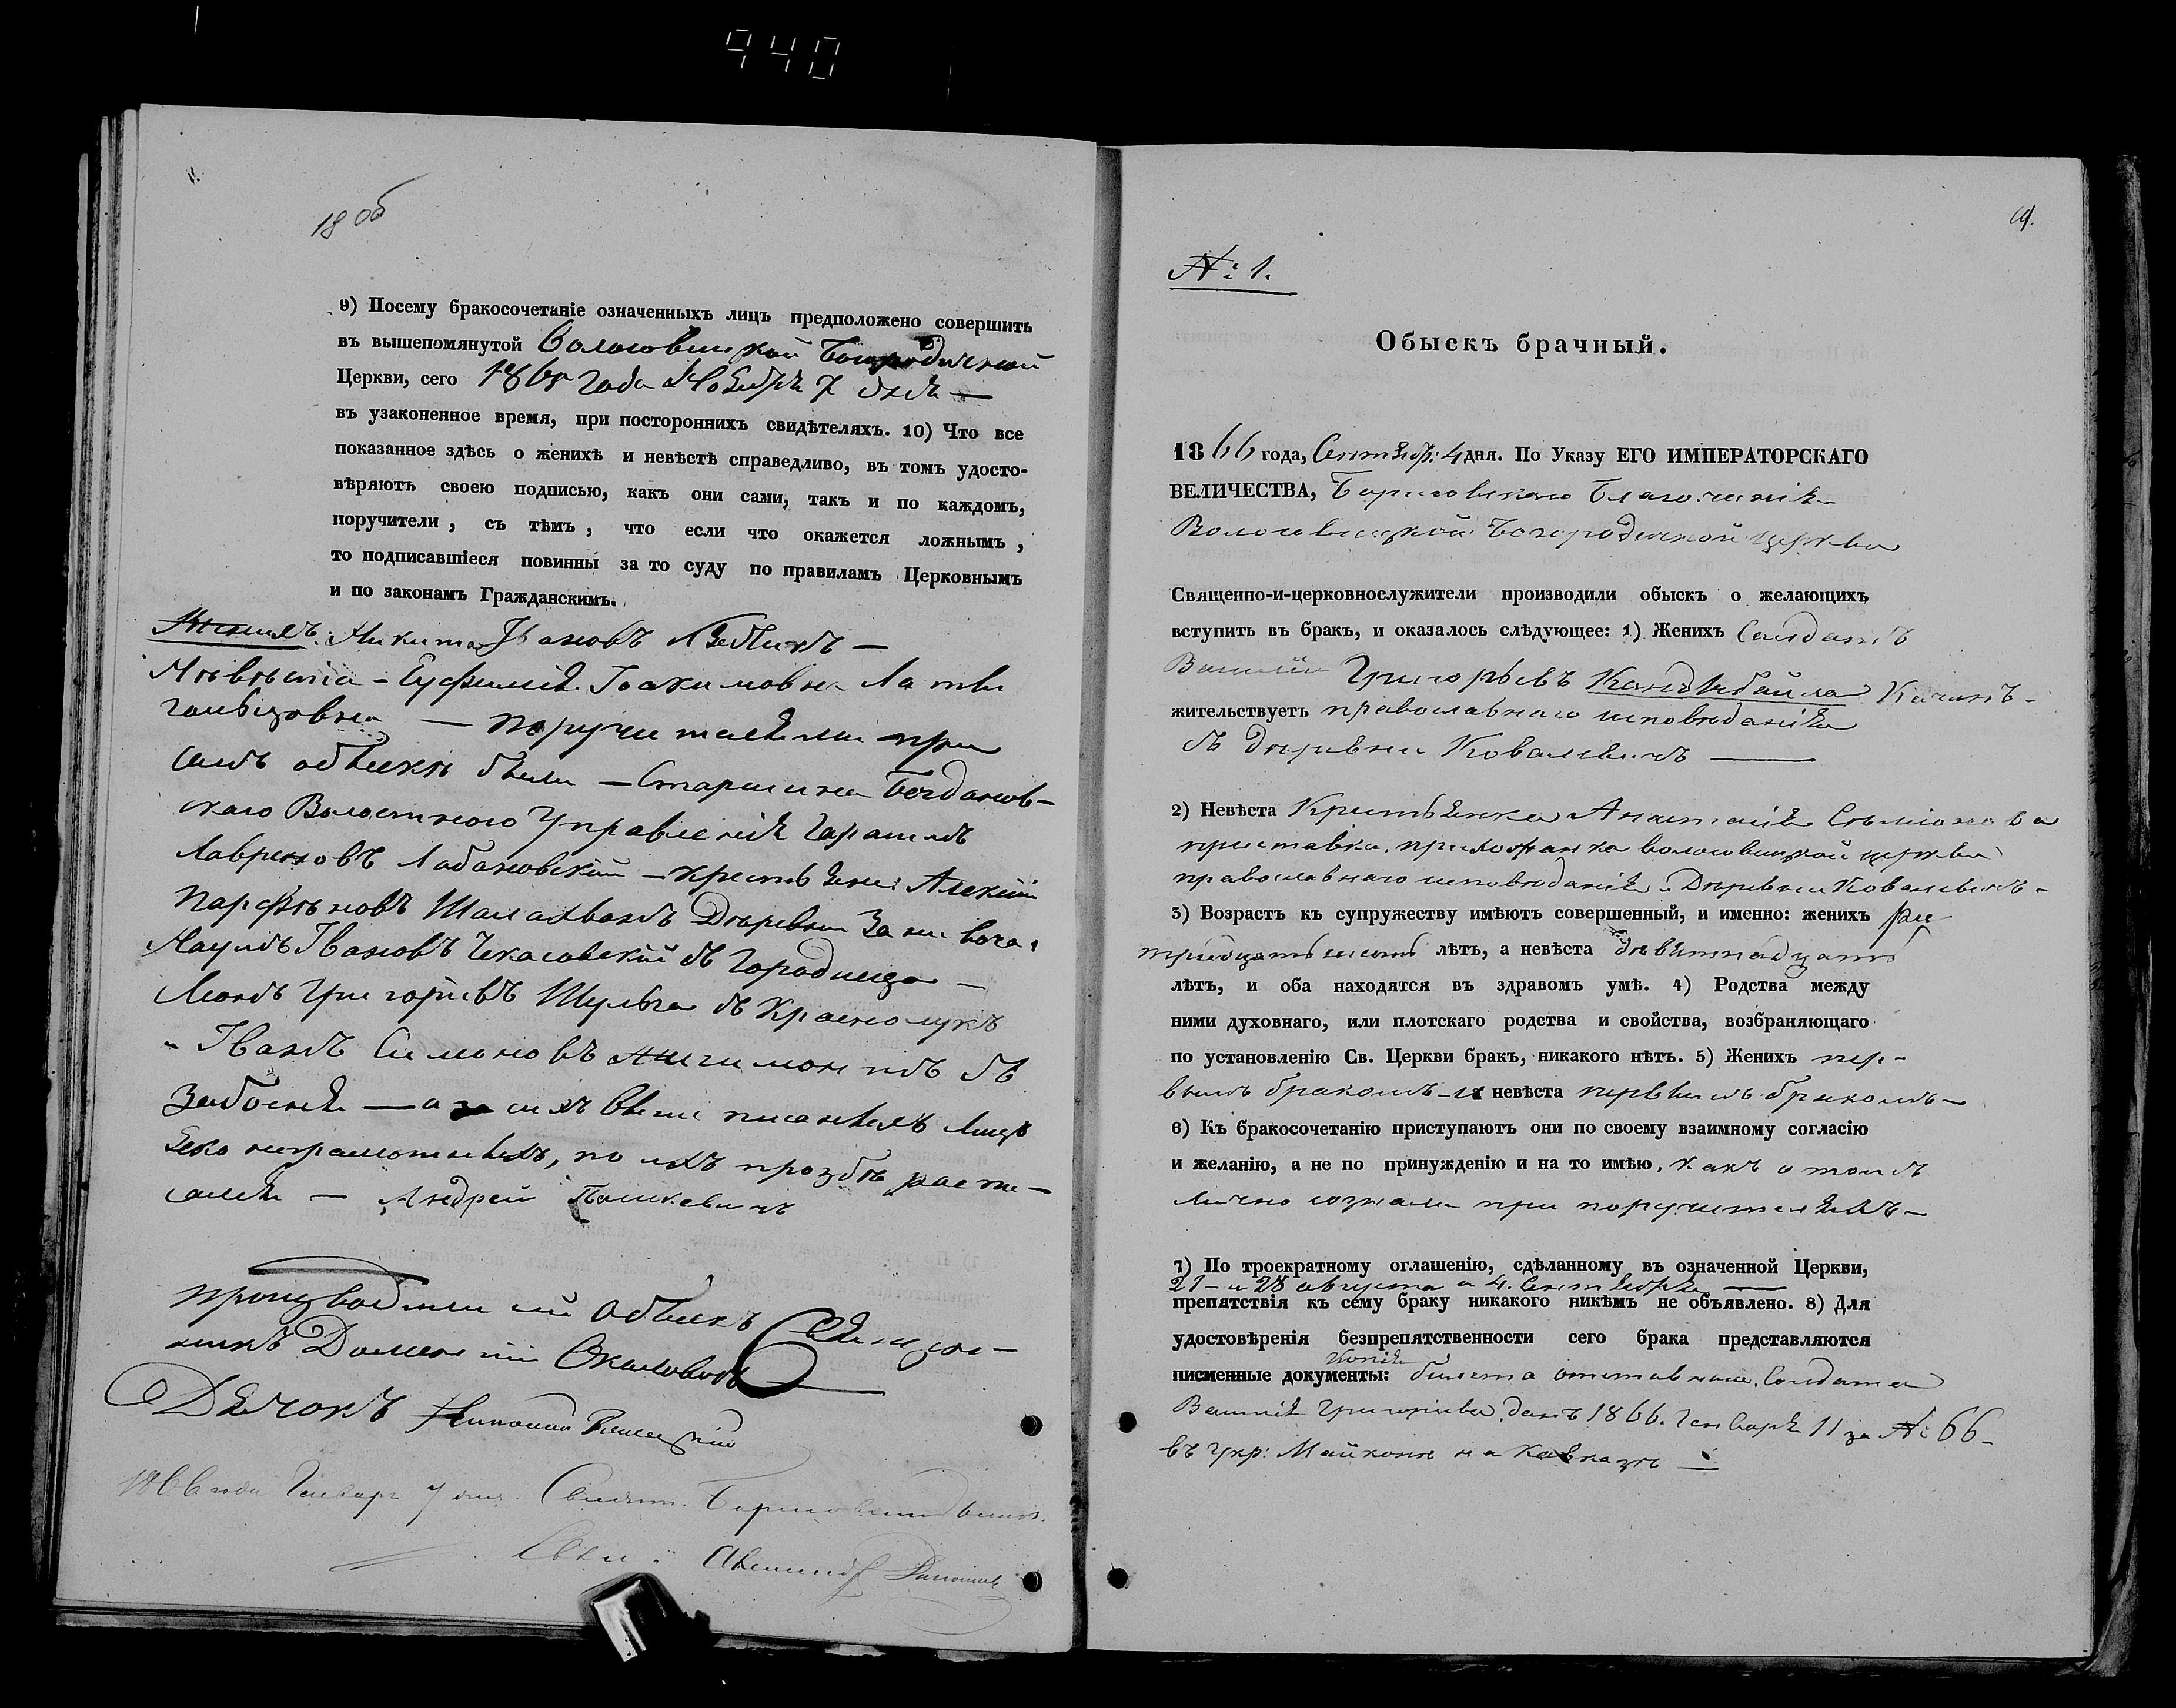 940
18 об
9) Посему бракосочетаніе означенныхъ лицъ предположено совершить
въ вышепомянутой Волосовицкой Богородичной
Церкви, сего 186 года Ноября 7 дня —
въ узаконенное время, при постороннихъ свидѣтеляхъ. 10) Что все
показанное здѣсь о женихѣ и невѣстѣ справедливо, въ томъ удосто-
вѣряютъ своею подписью, какъ они сами, такъ и по каждомъ,
поручители, съ тѣмъ, что если что окажется ложнымъ,
то подписавшіеся повинны за то суду по правиламъ Церковнымъ
и по законамъ Гражданскимъ.
Женихъ Никита Ивановъ —
Невѣста - Еуфимія Іоакимовна
— поручителями при
семъ обыскѣ были — Старшина Богданов-
скаго Волостного Управленія Гарасимъ
Лавреновъ Лабановскій — крестьяне: Алексій
Парфѣновъ Деревни
Наумъ Івановъ Чекасовскій д Городища —
Леонъ Григорьевъ Шульга д Краснолукъ
Іванъ Симоновъ д
— а за сихъ выше писанныхъ лицъ
яко неграмотныхъ, по ихъ прозбѣ распи-
сался — Андрей
производили сій обыскъ Священ-
никъ Доменикій Околовичъ
Дьячокъ
1866 года Генваря 7 дня
№ 1.
Обыскъ брачный.
1866 года, Сентябр: 4 дня. По Указу ЕГО ИМПЕРАТОРСКАГО
ВЕЛИЧЕСТВА, Борисовскаго Благочинія
Волосовицкой Богородичной церкви
Священно-и-церковнослужители производили обыскъ о желающихъ
вступить въ бракъ, и оказалось слѣдующее: 1) Женихъ Солдатъ
Василій Григорьевъ
жительствуетъ православнаго исповѣданія
въ деревни Ковалевичъ —
2) Невѣста Крестьянка Анастасія Сѣмионова
приставка, прихожанка волосовицкой церкви
православнаго исповѣданія. Деревни Ковалевичъ -
3) Возрастъ къ супружеству имѣютъ совершенный, и именно: женихъ
тридцать шесть лѣтъ, а невѣста девятнадцать
лѣтъ, и оба находятся въ здравомъ умѣ. 4) Родства между
ними духовнаго, или плотскаго родства и свойства, возбраняющаго
по установленію Св. Церкви бракъ, никакого нѣтъ. 5) Женихъ пер-
вымъ бракомъ - и невѣста первымъ бракомъ -
6) Къ бракосочетанію приступаютъ они по своему взаимному согласію
и желанію, а не по принужденію и на то имѣю, какъ о томъ
лично сознали при поручителяхъ -
7) По троекратному оглашенію, сдѣланному въ означенной Церкви,
21 - и 28 августа и 4. Сентября —
препятствія къ сему браку никакого никѣмъ не объявлено. 8) Для
удостовѣренія безпрепятственности сего брака представляются
копія
писменные документы: билета отставнаго Солдата
Василія Григорьева, данъ 1866. Генваря 11 за №: 66 -
въ укр: Майкопѣ на Кавказѣ —